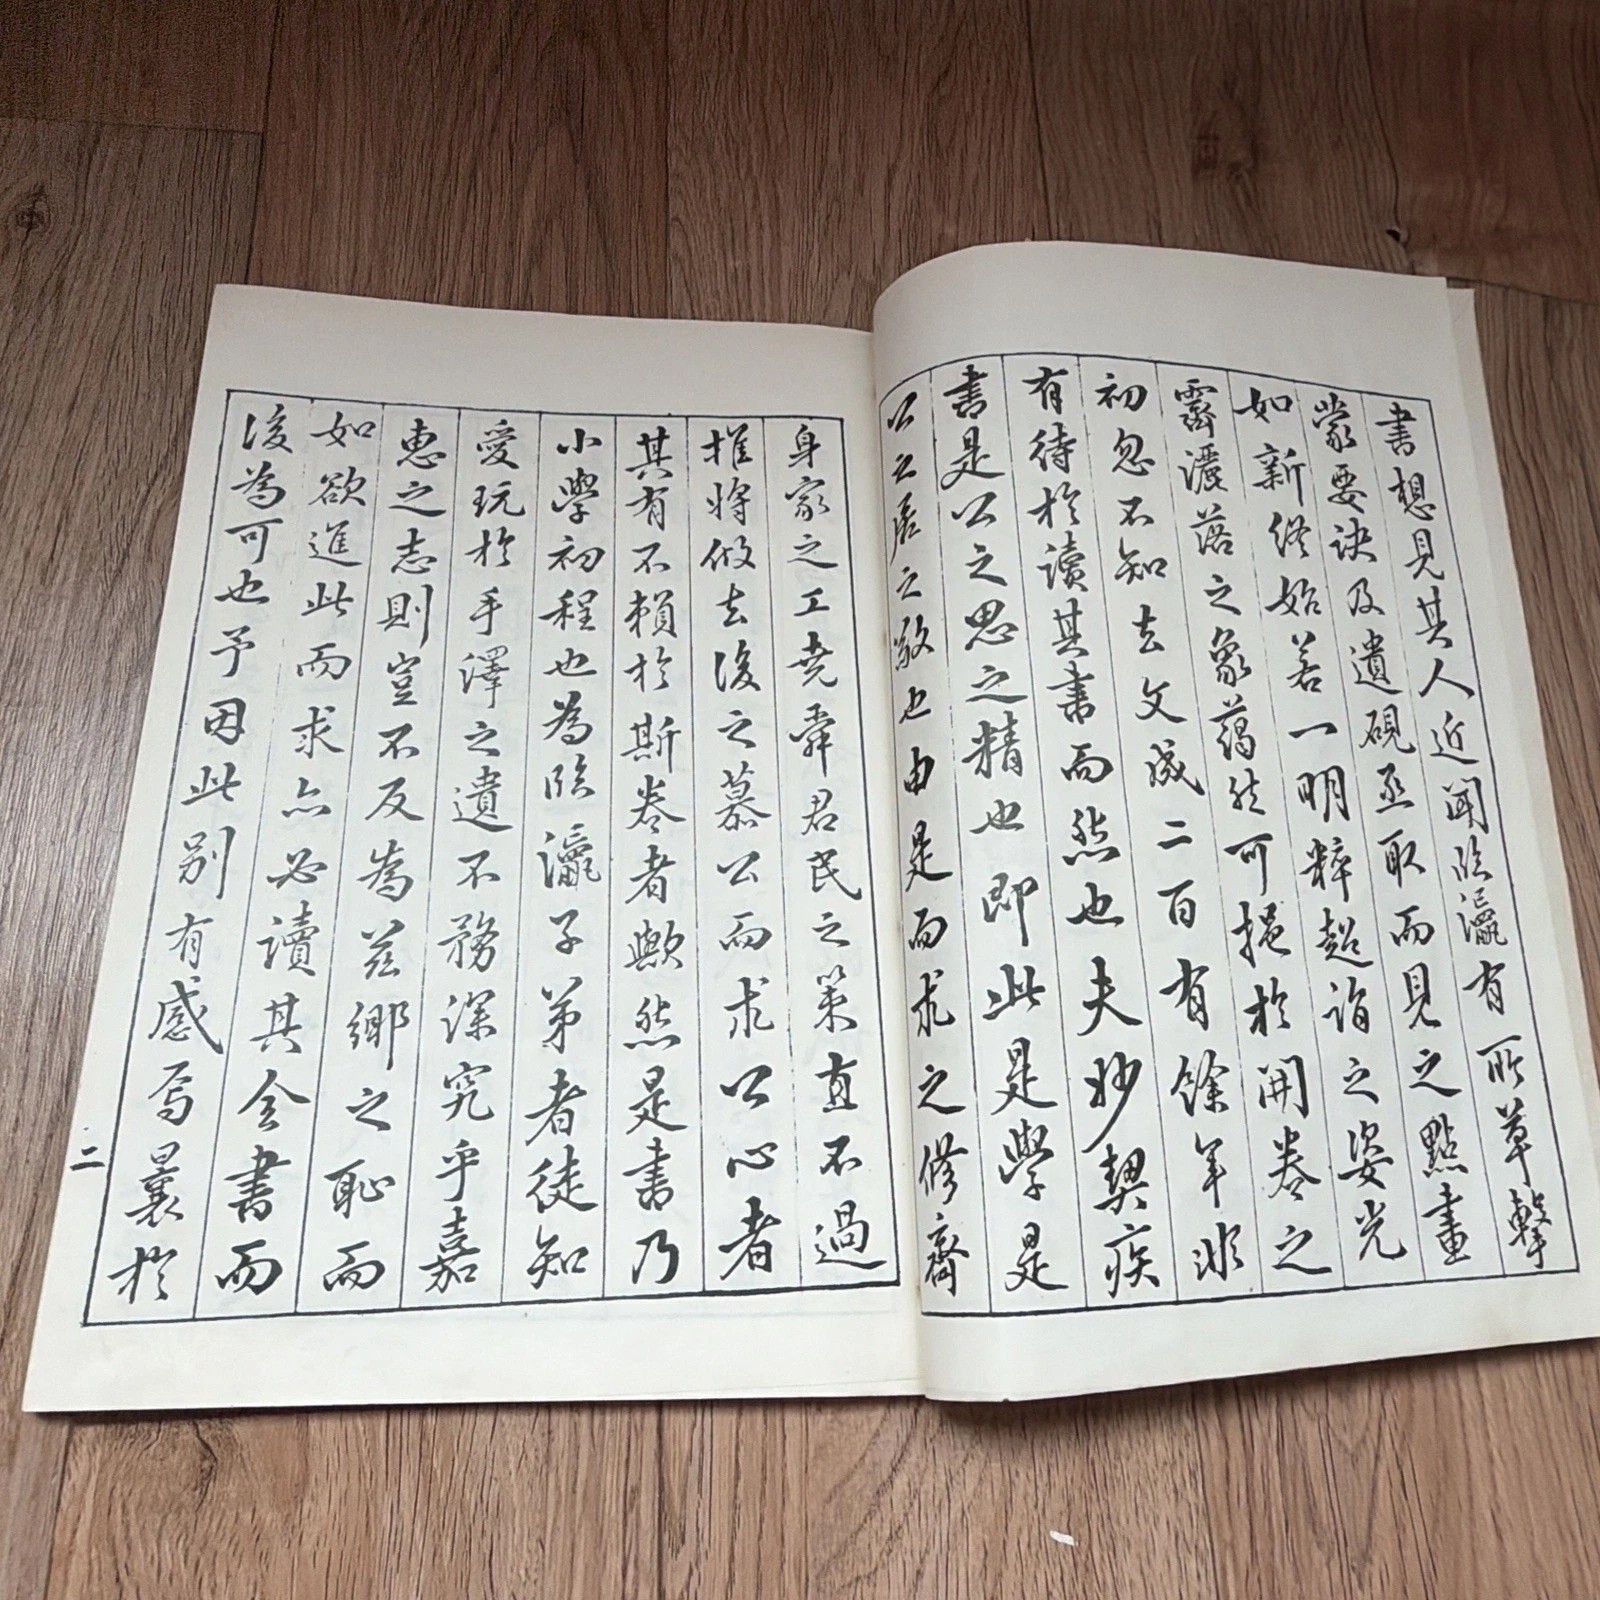 書想見其人近聞臨瀛有所草擊
蒙要訣及遺硯亟取而見之點畫
如新俢始若一明粹超詣之姿光
霽灑落之象藹然可挹於開卷之
初忽不知去文成二百有餘年非
有待於讀其書而然也夫妙契疾
書是公之思之精也即此是學是
公之居之敬也由是而求之修齊
身家之工堯舜君民之策直不過
推將俶去後之慕公而求公心者
其有不賴於斯卷者歟然是書乃
小學初程也為臨瀛子弟者徒知
愛玩於手澤之遺不務深究乎嘉
惠之志則豈不反為茲鄉之恥而
如欲進此而求亦必讀其全書而
後為可也予因此別有感焉曩於
二